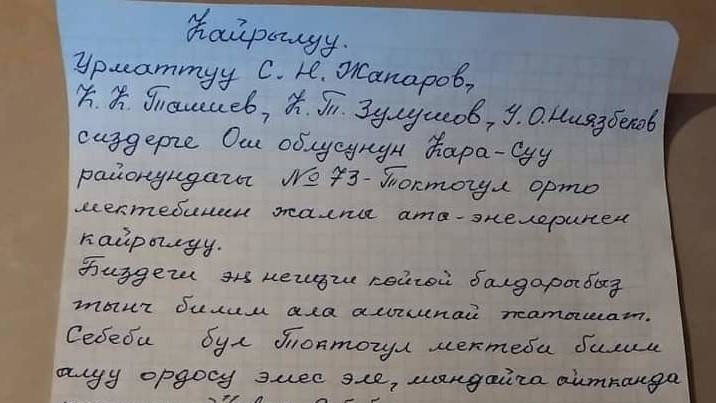 Кайрылуу.
Урматтуу С. Н. Жапаров,
К. К. Ташиев, К. Т. Зулушов, У. О. Ниязбеков
сиздерге Ош облусунун Кара-Суу
районундагы № 73-Токтогул орто
мектебинин жалпы ата-энелеринен
кайрылуу.
Биздеги эң негизги көйгөй балдарыбыз
тынч билим ала алышпай жатышат.
Себеби бул Токтогул мектеби билим
алуу ордосу эмес эле, мындайча айтканда